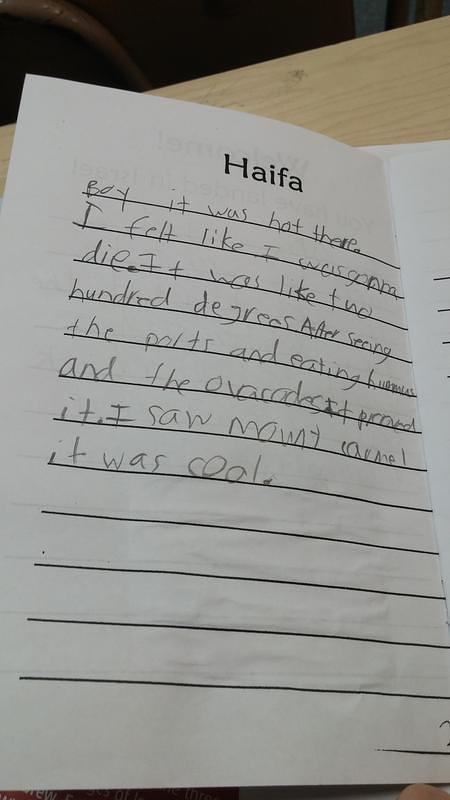 Haifa
Boy it was hot there.
I felt like I was gonna
die. It was like two
hundred degrees After seeing
the ports and eating hummus
and the ovacodes It proved
it. I saw mount carmel
it was cool.